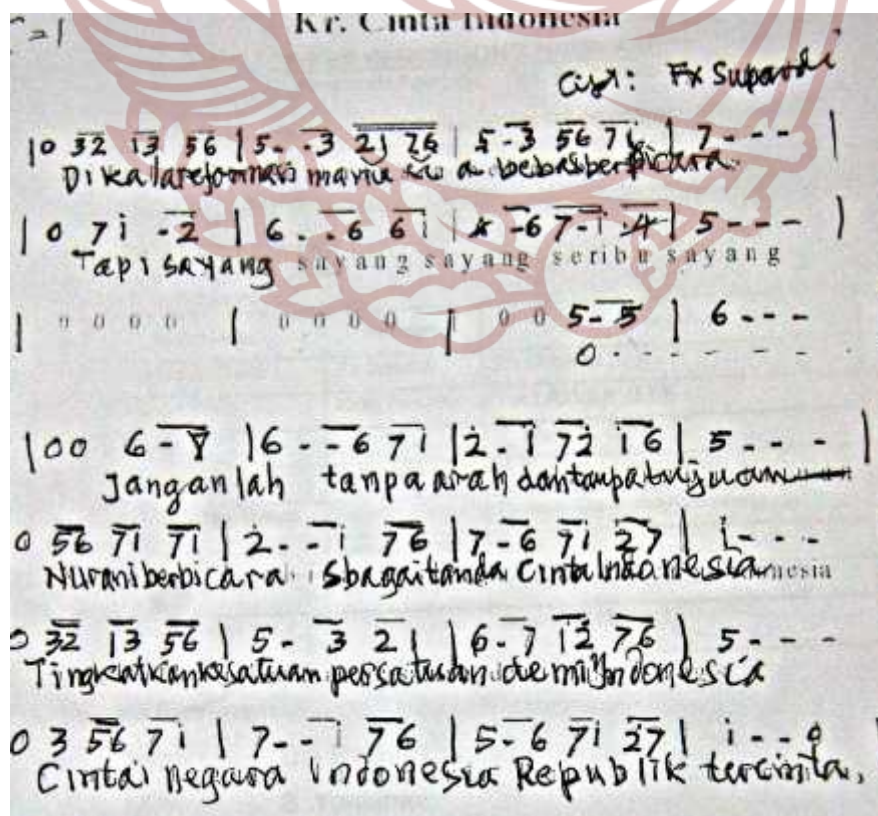 = 1 Kr. Cinta Indonesia
Cipt: FX Supardi
| 0 32 13 56 | 5 - - 3 21 76 | 5 - 3 56 71 | 7 - - - |
Di kala reformasi bebas berbicara
| 0 7 i - 2 | 6 - - 6 6 i | - 6 7 - i 4 | 5 - - - |
Tapi sayang sayang sayang seribu sayang
| 0 0 0 0 | 0 0 0 0 | 0 0 5 - 5 | 6 - - -
0 - - - - -
| 0 0 6 - 7 | 6 - - 6 7 i | 2 - i 7 2 i 6 | 5 - - - |
Janganlah tanpa arah dan tanpa tujuan
0 56 71 71 | 2 - - i 76 | 7 - 6 71 27 | i - - -
Nurani berbicara Sbagai tanda Cinta Indonesia nesia
0 32 13 56 | 5 - 3 21 | 6 - 7 12 76 | 5 - - -
Tingkatkan kesatuan persatuan demi Indonesia
0 3 56 7 i | 7 - - i 76 | 5 - 6 71 27 | i - - 0 |
Cintai negara Indonesia Republik tercinta.